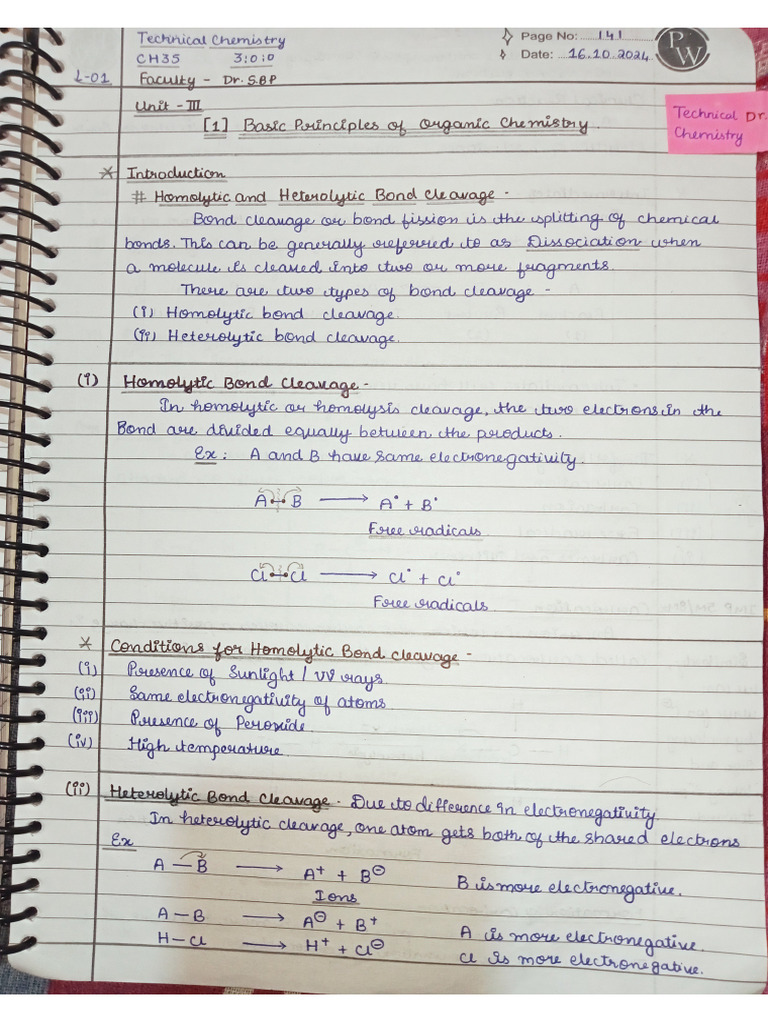 Technical Chemistry
CH35 3:0:0
Page No: 141
Date: 16.10.2024
PW
L-01 Faculty - Dr. S.B.P
Unit - III
[1] Basic Principles of Organic Chemistry.
Technical Dr.
Chemistry
* Introduction
# Homolytic and Heterolytic Bond Cleavage -
Bond cleavage or bond fission is the splitting of chemical
bonds. This can be generally referred to as Dissociation when
a molecule is cleaved into two or more fragments.
There are two types of bond cleavage -
(i) Homolytic bond cleavage.
(ii) Heterolytic bond cleavage.
(i) Homolytic Bond Cleavage -
In homolytic or homolysis cleavage, the two electrons in the
Bond are divided equally between the products.
Ex: A and B have same electronegativity.
A : B ⟶ A• + B•
Free radicals
Cl : Cl ⟶ Cl• + Cl•
Free radicals
* Conditions for Homolytic Bond cleavage -
(i) Presence of Sunlight / UV rays
(ii) Same electronegativity of atoms
(iii) Presence of Peroxide
(iv) High temperature
(ii) Heterolytic Bond Cleavage - Due to difference in electronegativity
In heterolytic cleavage, one atom gets both of the shared electrons
Ex
A — B ⟶ A⁺ + B⊖ B is more electronegative.
Ions
A – B ⟶ A⊖ + B⁺ A is more electronegative.
H – Cl ⟶ H⁺ + Cl⊖ Cl is more electronegative.